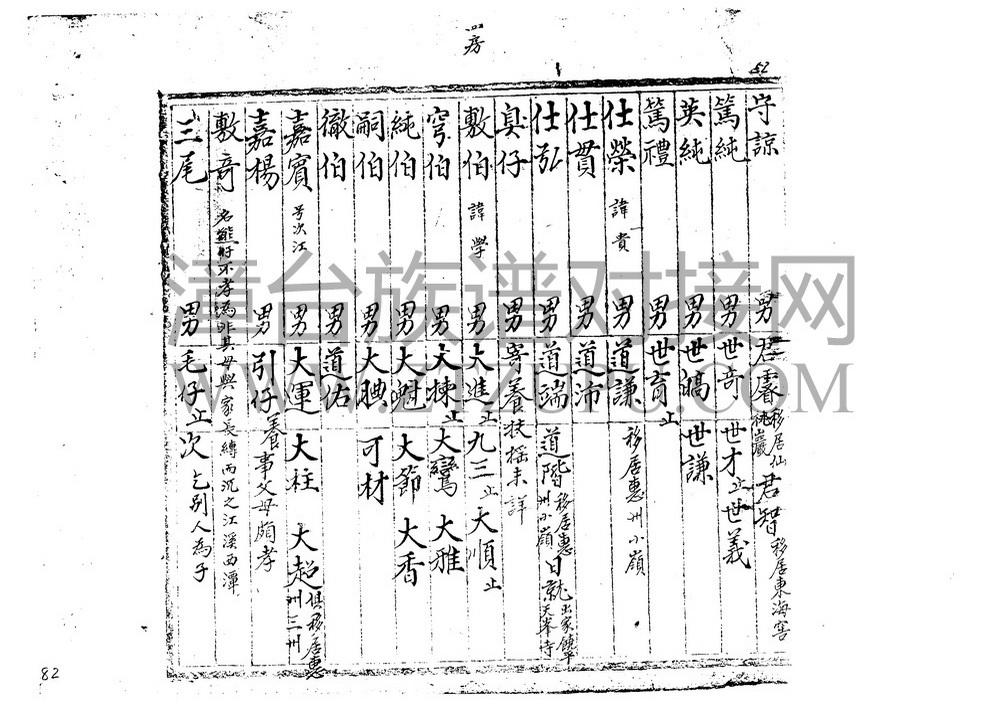 四房
52
守諒 男 君靂 移居仙桃巖 君智 移居東海窖
篤純 男 世奇 世才止 世義
英純 男 世皜 世謙
篤禮 男 世育止
仕榮 諱貴 男 道謙 移居惠州小嶺
仕貫 男 道沛
仕弘 男 道端 道階 移居惠州小嶺 日就 出家蓮天峯寺
臭仔 男 寄養扶摇未詳
敷伯 諱學 男 大進止 九三止 大順止
穹伯 男 大揀止 大鸞 大雅
純伯 男 大魁 大節 大香
嗣伯 男 大腆 可材
徹伯 男 道佑
嘉賓 号次江 男 大運 大柱 大超 俱移居惠州三州
嘉楊 男 引仔 養事父母頗孝
敷奇 名熊仔不孝為非其母與家長縛而沉之江溪西潭
三尾 男 毛仔止 次乞别人為子
82
漳台族谱对接网
WWW.ZTZUPU.COM